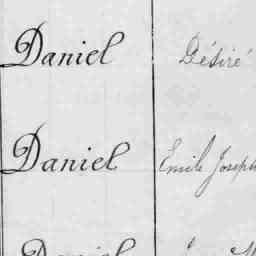 Daniel Désiré
Daniel Emile Joseph
Daniel